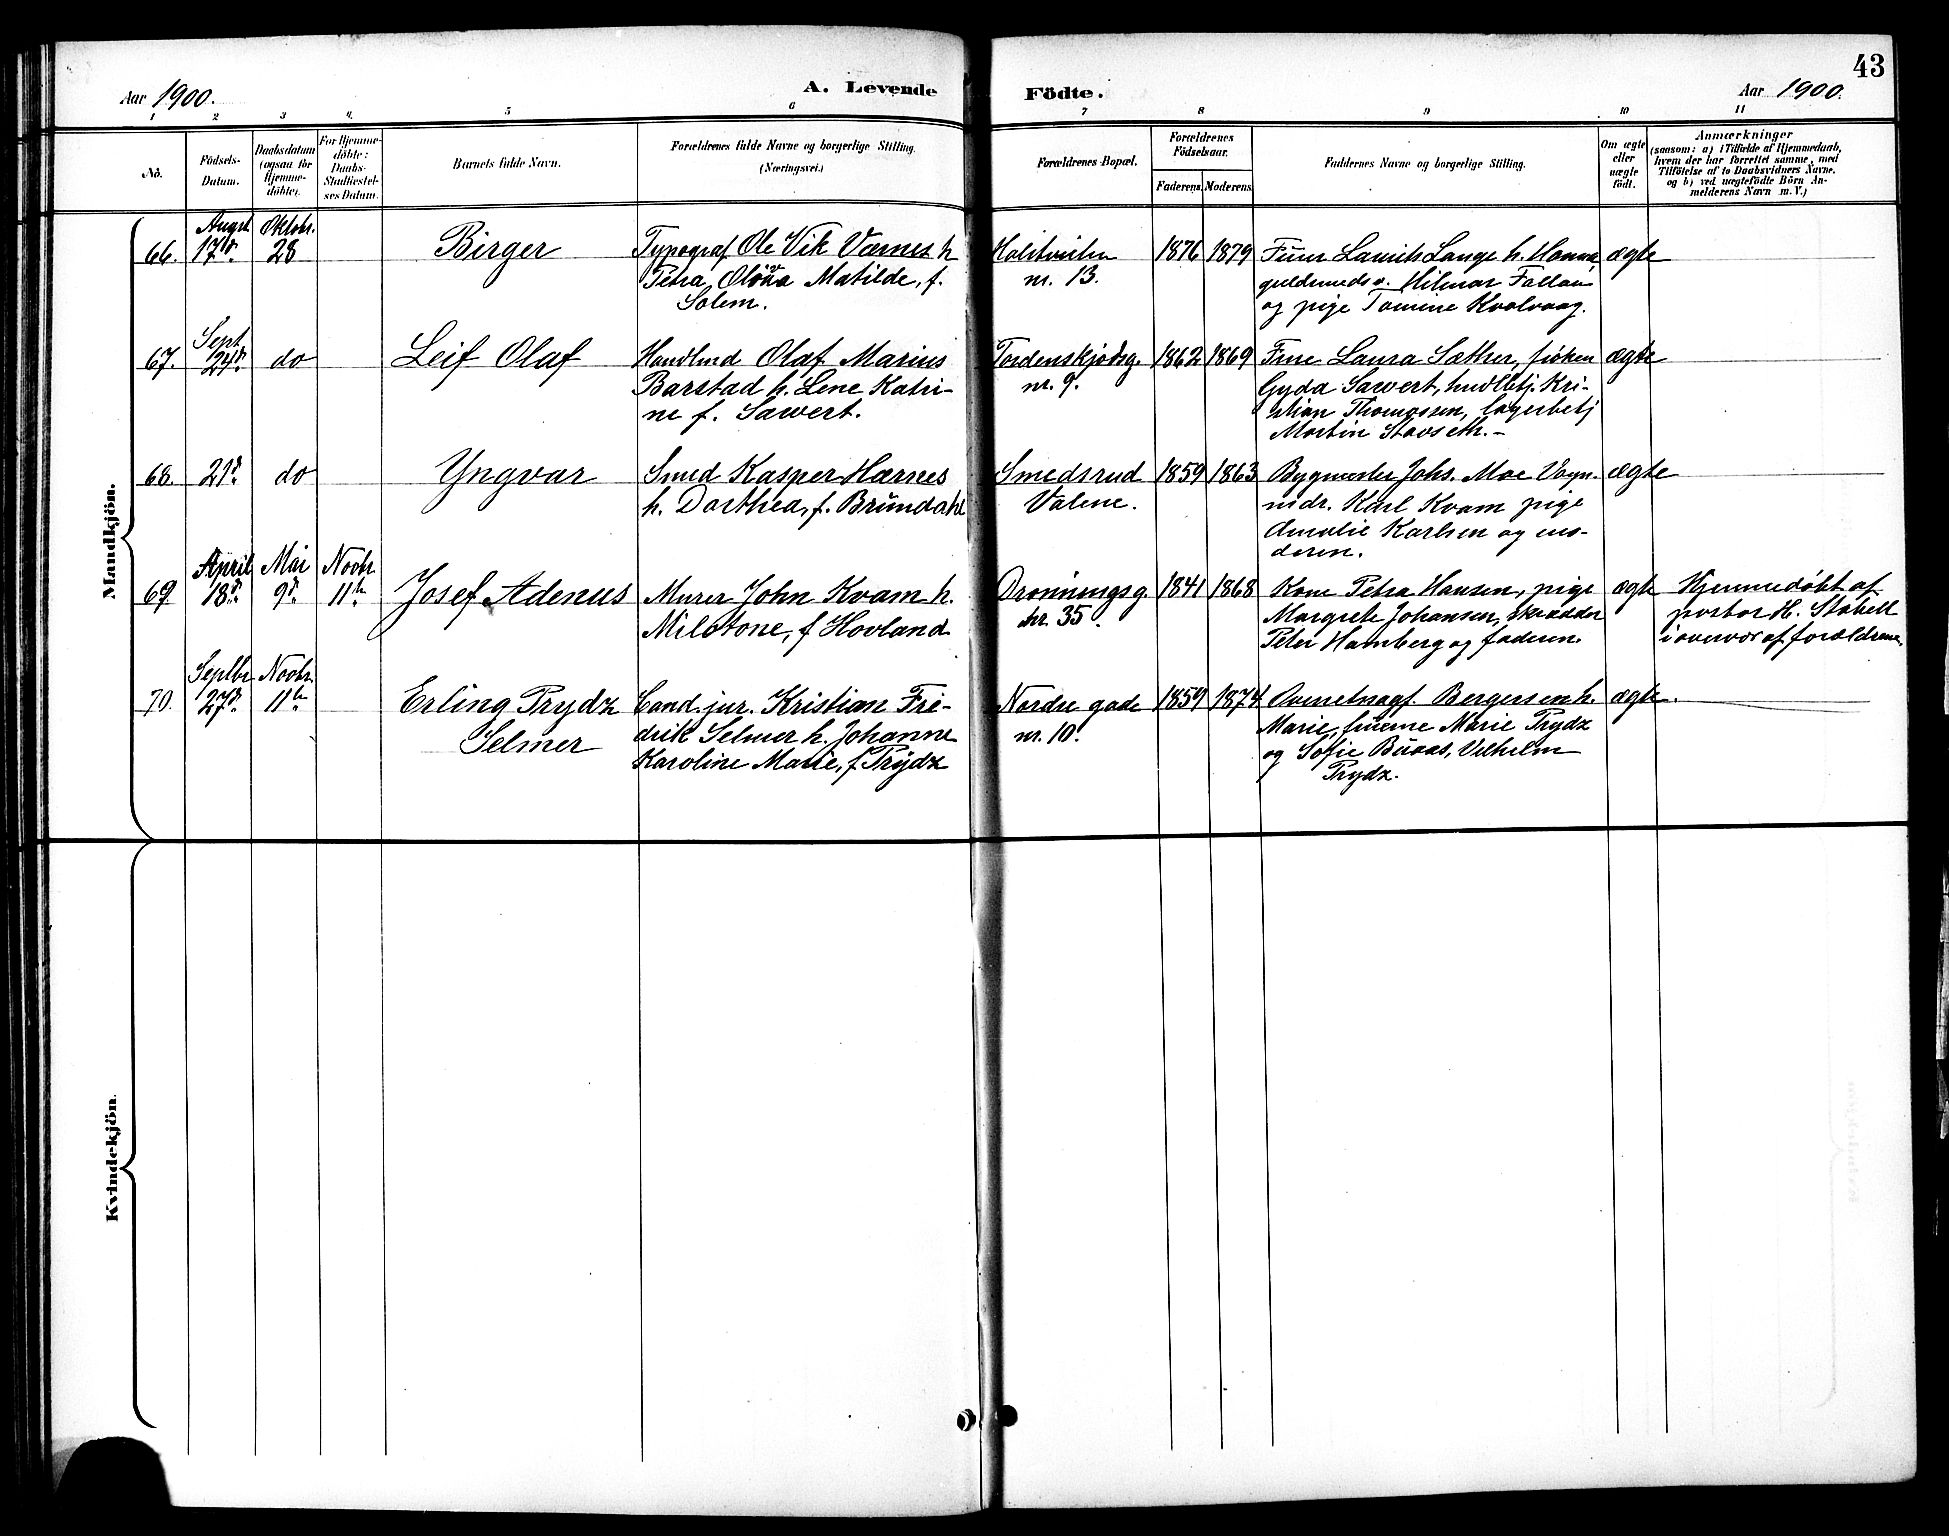 43
Aar 1900.
A. Levende Födte.
Aar 1900.
1 2 3 4. 5 6 7 8 9 10 11
No.
Födsels-
Datum.
Daabsdatum
(ogsaa for
Hjemme-
döbte).
For Hjemme-
döbte:
Daabs-
Stadfæstel-
ses Datum.
Barnets fulde Navn.
Forældrenes fulde Navne og borgerlige Stilling.
(Næringsvei.)
Forældrenes Bopæl.
Forældrenes
Födselsaar.
Faderens. Moderens.
Faddernes Navne og borgerlige Stilling.
Om ægte
eller
uægte
födt.
Anmærkninger
(saasom: a) i Tilfælde af Hjemmedaab,
hvem der har forrettet samme, med
Tilföielse af to Daabsvidners Navne,
og b) ved uægtefödte Börn An-
melderens Navn m. V.)
Mandkjön.
66.
Augst
17d.
Oktobr.
28
Birger
Typograf Ole Vik Værnes h
Petra Olöva Matilde, f.
Solem.
nr. 13.
1876 1879
Lange h. Hanna
Hilmar
og pige Tomine Kvalvaag.
ægte
67.
Sept.
24d.
do
Leif Olaf
Handlmd Olaf Marius
Barstad h. Lene Katri-
ne f. Sawert.
Tordenskjodsg.
nr. 9.
1862 1869
Frue Laura Sæther, fröken
Gyda Sawert, hndlbtj. Kri-
stian Thomassen, lagerbetj
Martin Stavseth.-
ægte
68.
21d
do
Yngvar
Smed Kasper Hærnes
h. Dorthea, f. Brúndahl
Smedsrud
Valene.
1859 1863
Bygmester Johs. Moe Vogn-
mdr. Karl Kvam pige
Amalie Karlsen og mo-
deren.
ægte
69
April
18d.
Mai
9d.
Novbr
11te
Josef Adenus
Murer John Kvam h.
f Hovland
Dronningsg.
nr. 35.
1841 1868
Kone Petra Hansen, pige
Margrete Johansen, skrædder
Peter Hamberg og faderen.
ægte
Hjemmedöbt af
pastor H. Stabell
i overvær af forældrene.
70.
Septbr
27d.
Novbr.
11te
Erling Prydz
Selmer
Cand. jur. Kristian Fre-
drik Selmer h. Johanne
Karoline Marie, f Prydz
Nordre gade
nr. 10.
1859 1874
Bergersen h.
Marie, fruerne Marie Prydz
og Sofie Búaas, Vilhelm
Prydz.
ægte.
Kvindekjön.